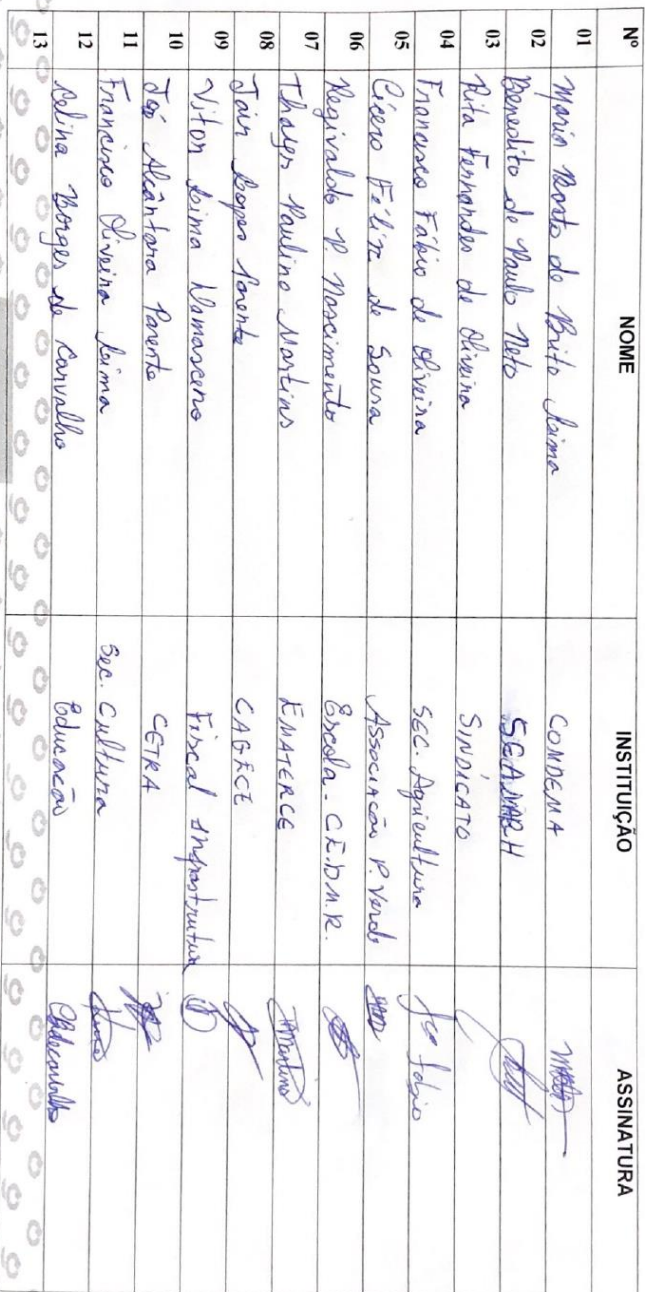 Nº NOME INSTITUIÇÃO ASSINATURA
01 Maria de Brito Lima CONDEMA
02 Benedito de Paulo Neto SEAMARH
03 Rita Fernandes de Oliveira SINDICATO
04 Francisco Fábio de Oliveira SEC. Agricultura Fco Fábio
05 Cícero Félix de Sousa Associação P. Verde
06 Regivaldo P. Nascimento Escola - C.E.D.M.R.
07 Thalyn Paulino Martins EMATERCE TMartins
08 Jair Lopes Parente CAGECE
09 Vitor Lima Damasceno Fiscal Infraestrutura
10 José Alcântara Parente CETRA
11 Francisco Oliveira Lima Sec. Cultura
12 Celina Borges de Carvalho Educação
13